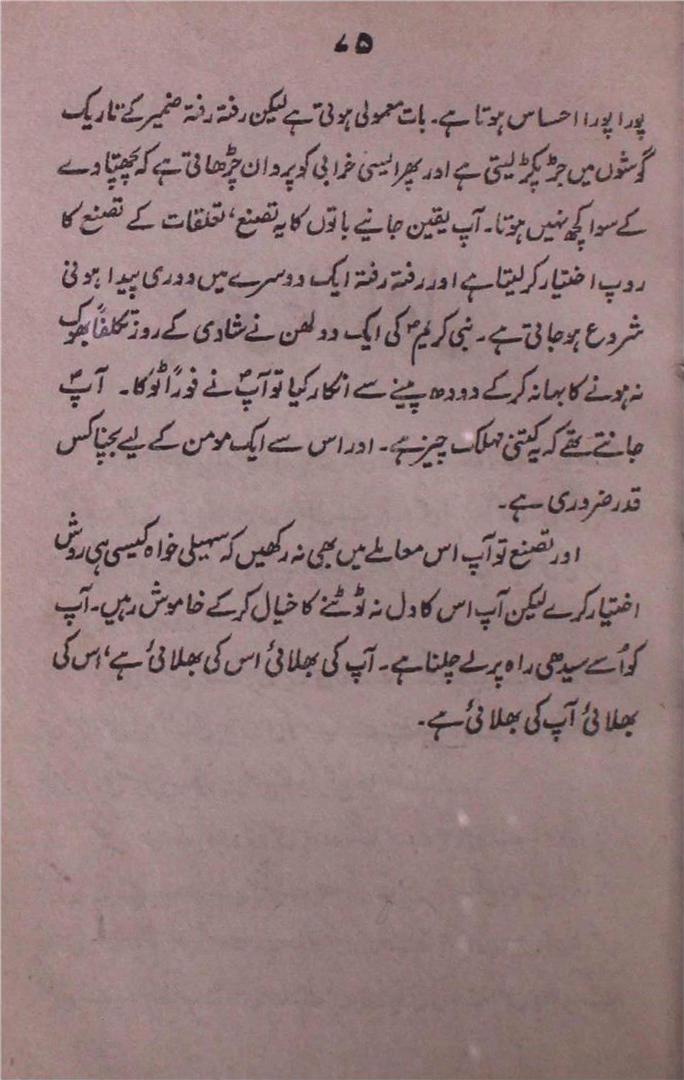 ۷۵
پورا پورا احساس ہوتا ہے۔ بات معمولی ہوتی ہے لیکن رفتہ رفتہ ضمیر کے تاریک
گوشوں میں جڑ پکڑ لیتی ہے اور پھر ایسی خرابی کو پروان چڑھاتی ہے کہ پچھتاوے
کے سوا کچھ نہیں ہوتا۔ آپ یقین جانیے باتوں کا یہ تصنع، تعلقات کے تصنع کا
روپ اختیار کر لیتا ہے اور رفتہ رفتہ ایک دوسرے میں دوری پیدا ہونی
شروع ہو جاتی ہے۔ نبی کریمؐ کی ایک دولھن نے شادی کے روز تکلفاً بھوک
نہ ہونے کا بہانہ کرکے دودھ پینے سے انکار کیا تو آپؐ نے فوراً ٹوکا۔ آپؐ
جانتے تھے کہ یہ کتنی مہلک چیز ہے۔ اور اس سے ایک مومن کے لیے بچنا کس
قدر ضروری ہے۔
اور تصنع تو آپ اس معاملے میں بھی نہ رکھیں کہ سہیلی خواہ کیسی ہی روش
اختیار کرے لیکن آپ اس کا دل نہ ٹوٹنے کا خیال کرکے خاموش رہیں۔ آپ
کو اُسے سیدھی راہ پر لے چلنا ہے۔ آپ کی بھلائی اس کی بھلائی ہے، اس کی
بھلائی آپ کی بھلائی ہے۔